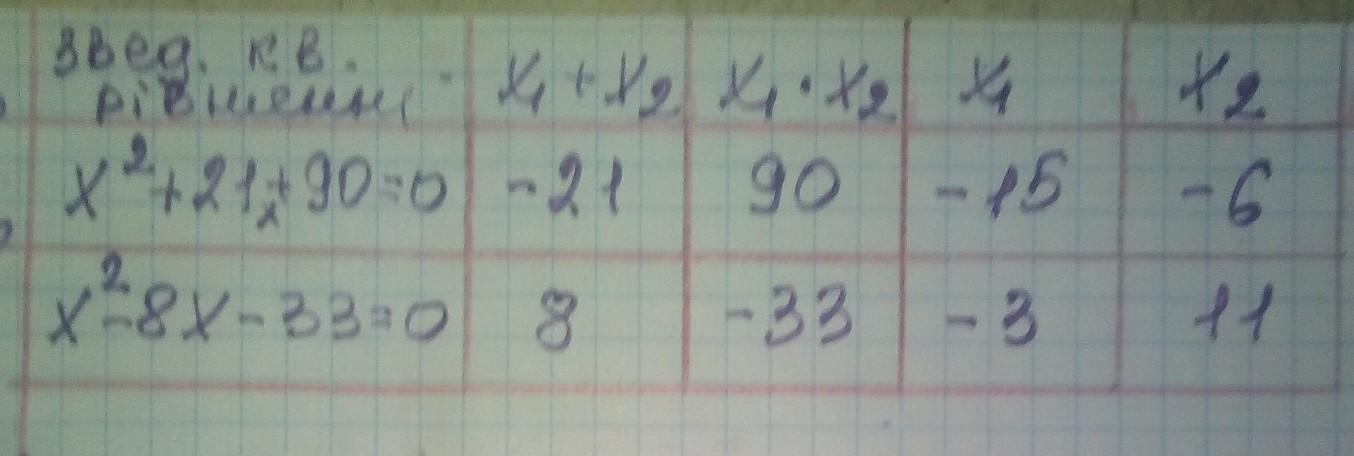 звед. кв.
рівнянні x₁ + x₂ x₁ · x₂ x₁ x₂
x² + 21x + 90 = 0 -21 90 -15 -6
x² - 8x - 33 = 0 8 -33 -3 11